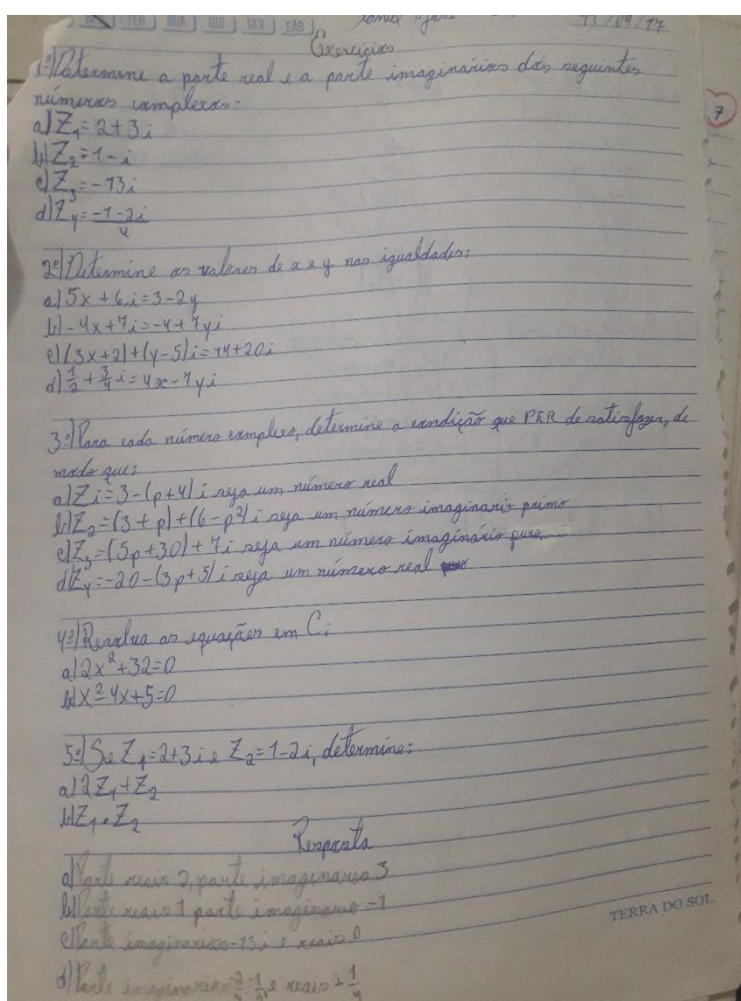 TER QUA QUI SEX SÁB 13/09/17
Exercícios
1º) Determine a parte real e a parte imaginárias dos seguintes
números complexos:
a) Z₁=2+3i
b) Z₂=1-i
c) Z₃=-13i
d) Z₄=-1-2i/4
7
2º) Determine os valores de x e y nas igualdades:
a) 5x+6i=3-2y
b) -4x+7i=-4+7yi
c) (3x+2)+(y-5)i=14+20i
d) 1/2+3/4i=4x-7yi
3º) Para cada número complexo, determine a condição que PER de satisfazer, de
modo que:
a) Zi=3-(p+4)i seja um número real
b) Z₂=(3+p)+(6-p²)i seja um número imaginario primo
c) Z₃=(5p+30)+7i seja um número imaginário puro
d) Z₄=-20-(3p+5)i seja um número real
4º) Resolva as equações em C;
a) 2x²+32=0
b) x²-4x+5=0
5º) Se Z₁=2+3i e Z₂=1-2i, determine:
a) 2Z₁+Z₂
b) Z₁•Z₂
Resposta
a) Parte reais 2, parte imaginaria 3
b) Parte reais 1 parte imaginario -1
c) Parte imaginarios -13i e reais 0
TERRA DO SOL
d) Parte imaginarios -2/4 -1/2 e reais -1/4